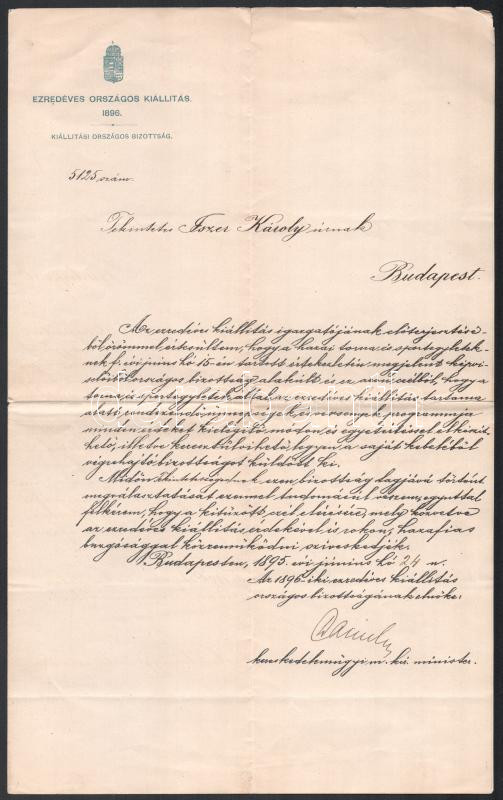 EZREDÉVES ORSZÁGOS KIÁLLITÁS.
1896.
KIÁLLITÁSI ORSZÁGOS BIZOTTSÁG.
5125 szám.
Tekintetes Iszer Károly úrnak
Budapest.
Az ezredéves kiállitás igazgatójának előterjesztésé-
ből örömmel értesültem, hogy a hazai torna és sportegyletek-
nek f. évi június hó 15-én tartott értekezletén megjelent képvi-
selői országos bizottsággá alakult és ez azon czélból, hogy a
torna és sportegyletek által az ezredéves kiállitás tartama
alatt rendezendő ünnepségek és versenyek programmja
minden érdeket kielégitő módon és egyetértéssel
hető, illetve keresztülvihető legyen, a saját kebeléből
végrehajtó bizottságot küldött ki.
Midőn ezen bizottság tagjává történt
megválasztatását ezennel tudomásul veszem, egyúttal
felkérem, hogy a kitűzött czél elérésére, mely közvetve
az ezredéves kiállitás érdekével is rokon, hazafias
buzgósággal közreműködni sziveskedjék.
Budapesten, 1895. évi június hó 24 n.
Az 1896-iki ezredéves kiállitás
országos bizottságának elnöke:
kereskedelemügyi m. kir. minister.